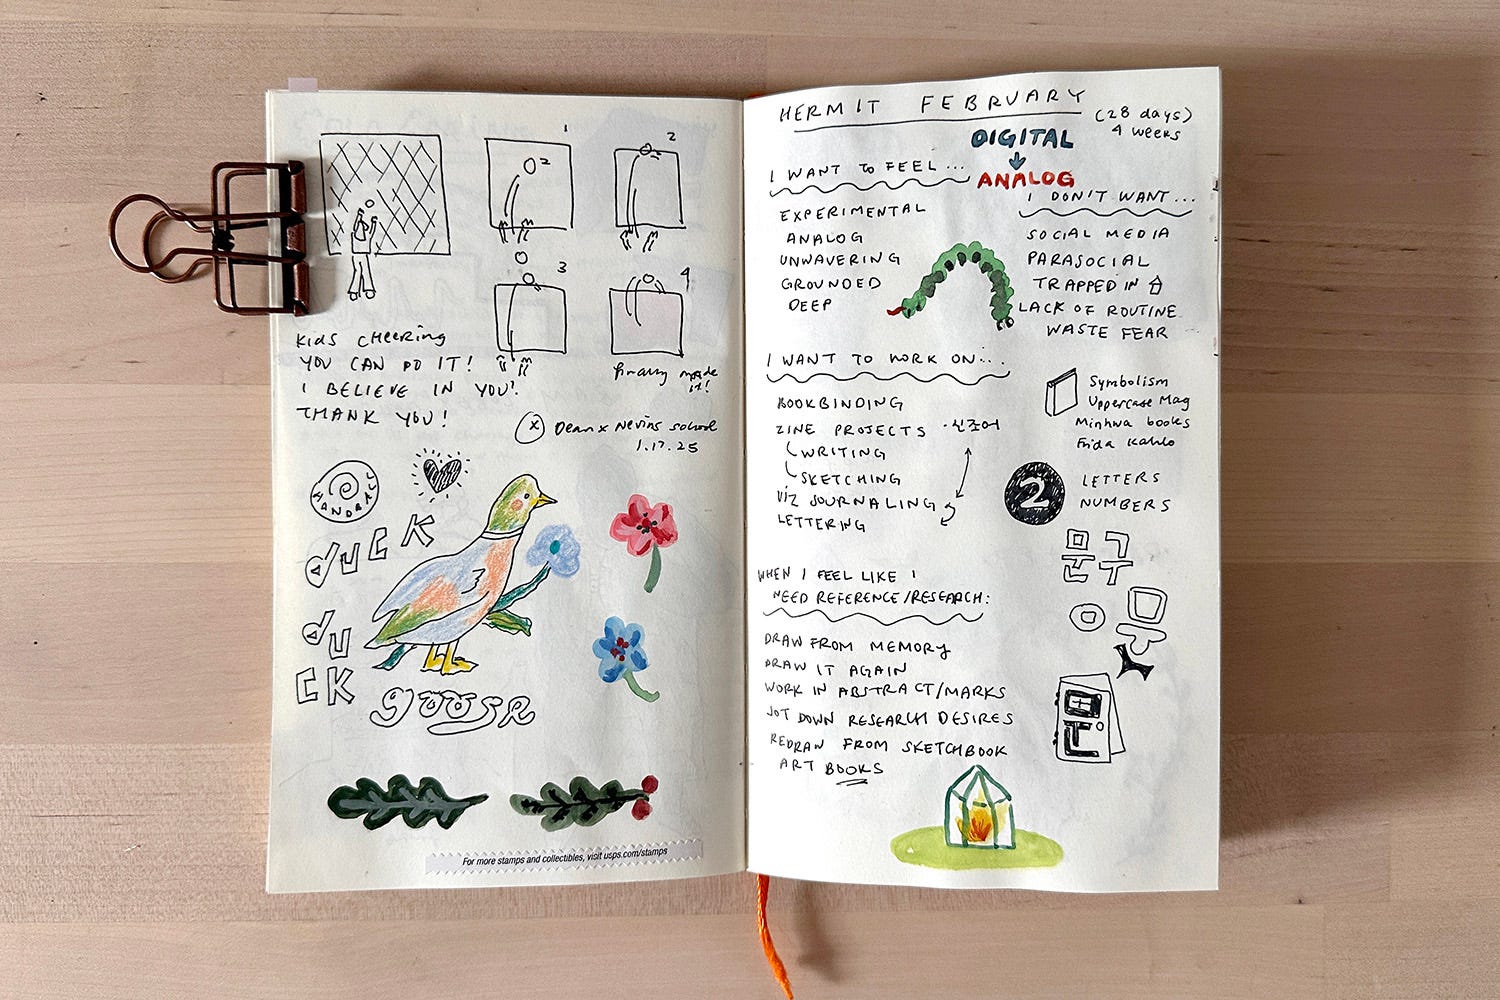 1
2
2
3
4
KIDS CHEERING
YOU CAN DO IT!
I BELIEVE IN YOU!
THANK YOU!
finally made
it!
X Deanx Nevins school
1.17.25
HANDBALL
DUCK
DU
CK
gooSR
For more stamps and collectibles, visit usps.com/stamps
HERMIT FEBRUARY
(28 days)
4 weeks
DIGITAL
ANALOG
I WANT to FEEL...
EXPERIMENTAL
ANALOG
UNWAVERING
GROUNDED
DEEP
I DON'T WANT...
SOCIAL MEDIA
PARASOCIAL
TRAPPED IN
LACK OF ROUTINE
WASTE FEAR
I WANT TO WORK ON...
BOOKBINDING
ZINE PROJECTS · 신조어
WRITING
SKETCHING
VIZ JOURNALING
LETTERING
Symbolism
Uppercase Mag
Minhwa books
Frida Kahlo
2
LETTERS
NUMBERS
문구
WHEN I FEEL LIKE I
NEED REFERENCE/RESEARCH:
DRAW FROM MEMORY
DRAW IT AGAIN
WORK IN ABSTRACT/MARKS
JOT DOWN RESEARCH DESIRES
REDRAW FROM SKETCHBOOK
ART BOOKS